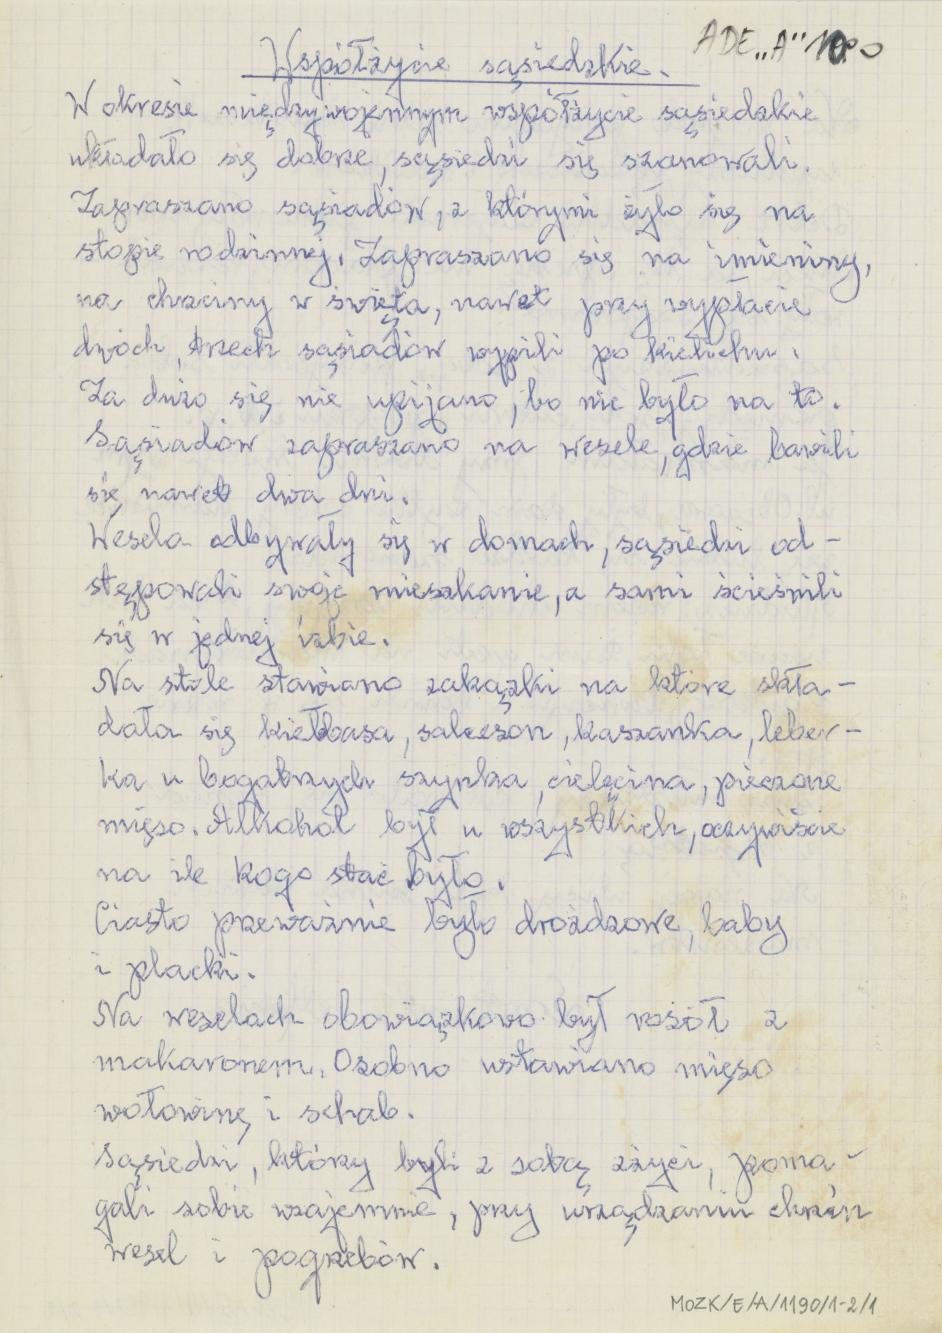 ADE „A" 1190
Współżycie sąsiedzkie.
W okresie międzywojennym współżycie sąsiedzkie
układało się dobrze, sąsiedzi się szanowali.
Zapraszano sąsiadów, z którymi żyło się na
stopie rodzinnej. Zapraszano się na imieniny,
na chrzciny w święta, nawet przy wypłacie
dwóch, trzech sąsiadów wypili po kielichu.
Za dużo się nie upijano, bo nie było na to.
Sąsiadów zapraszano na wesele, gdzie bawili
się nawet dwa dni.
Wesela odbywały się w domach, sąsiedzi od-
stępowali swoje mieszkanie, a sami ścieśnili
się w jednej izbie.
Na stole stawiano zakąski na które skła-
dała się kiełbasa, salceson, kaszanka, leber-
ka u bogatszych szynka, cielęcina, pieczone
mięso. Alkohol był u wszystkich, oczywiście
na ile kogo stać było.
Ciasto przeważnie było drożdżowe, baby
i placki.
Na weselach obowiązkowo był rosół z
makaronem. Osobno wstawiano mięso
wołowinę i schab.
Sąsiedzi, którzy byli z sobą zżyci, poma-
gali sobie wzajemnie, przy urządzaniu chrzcin
wesel i pogrzebów.
MOZK/E/A/1190/1-2/1